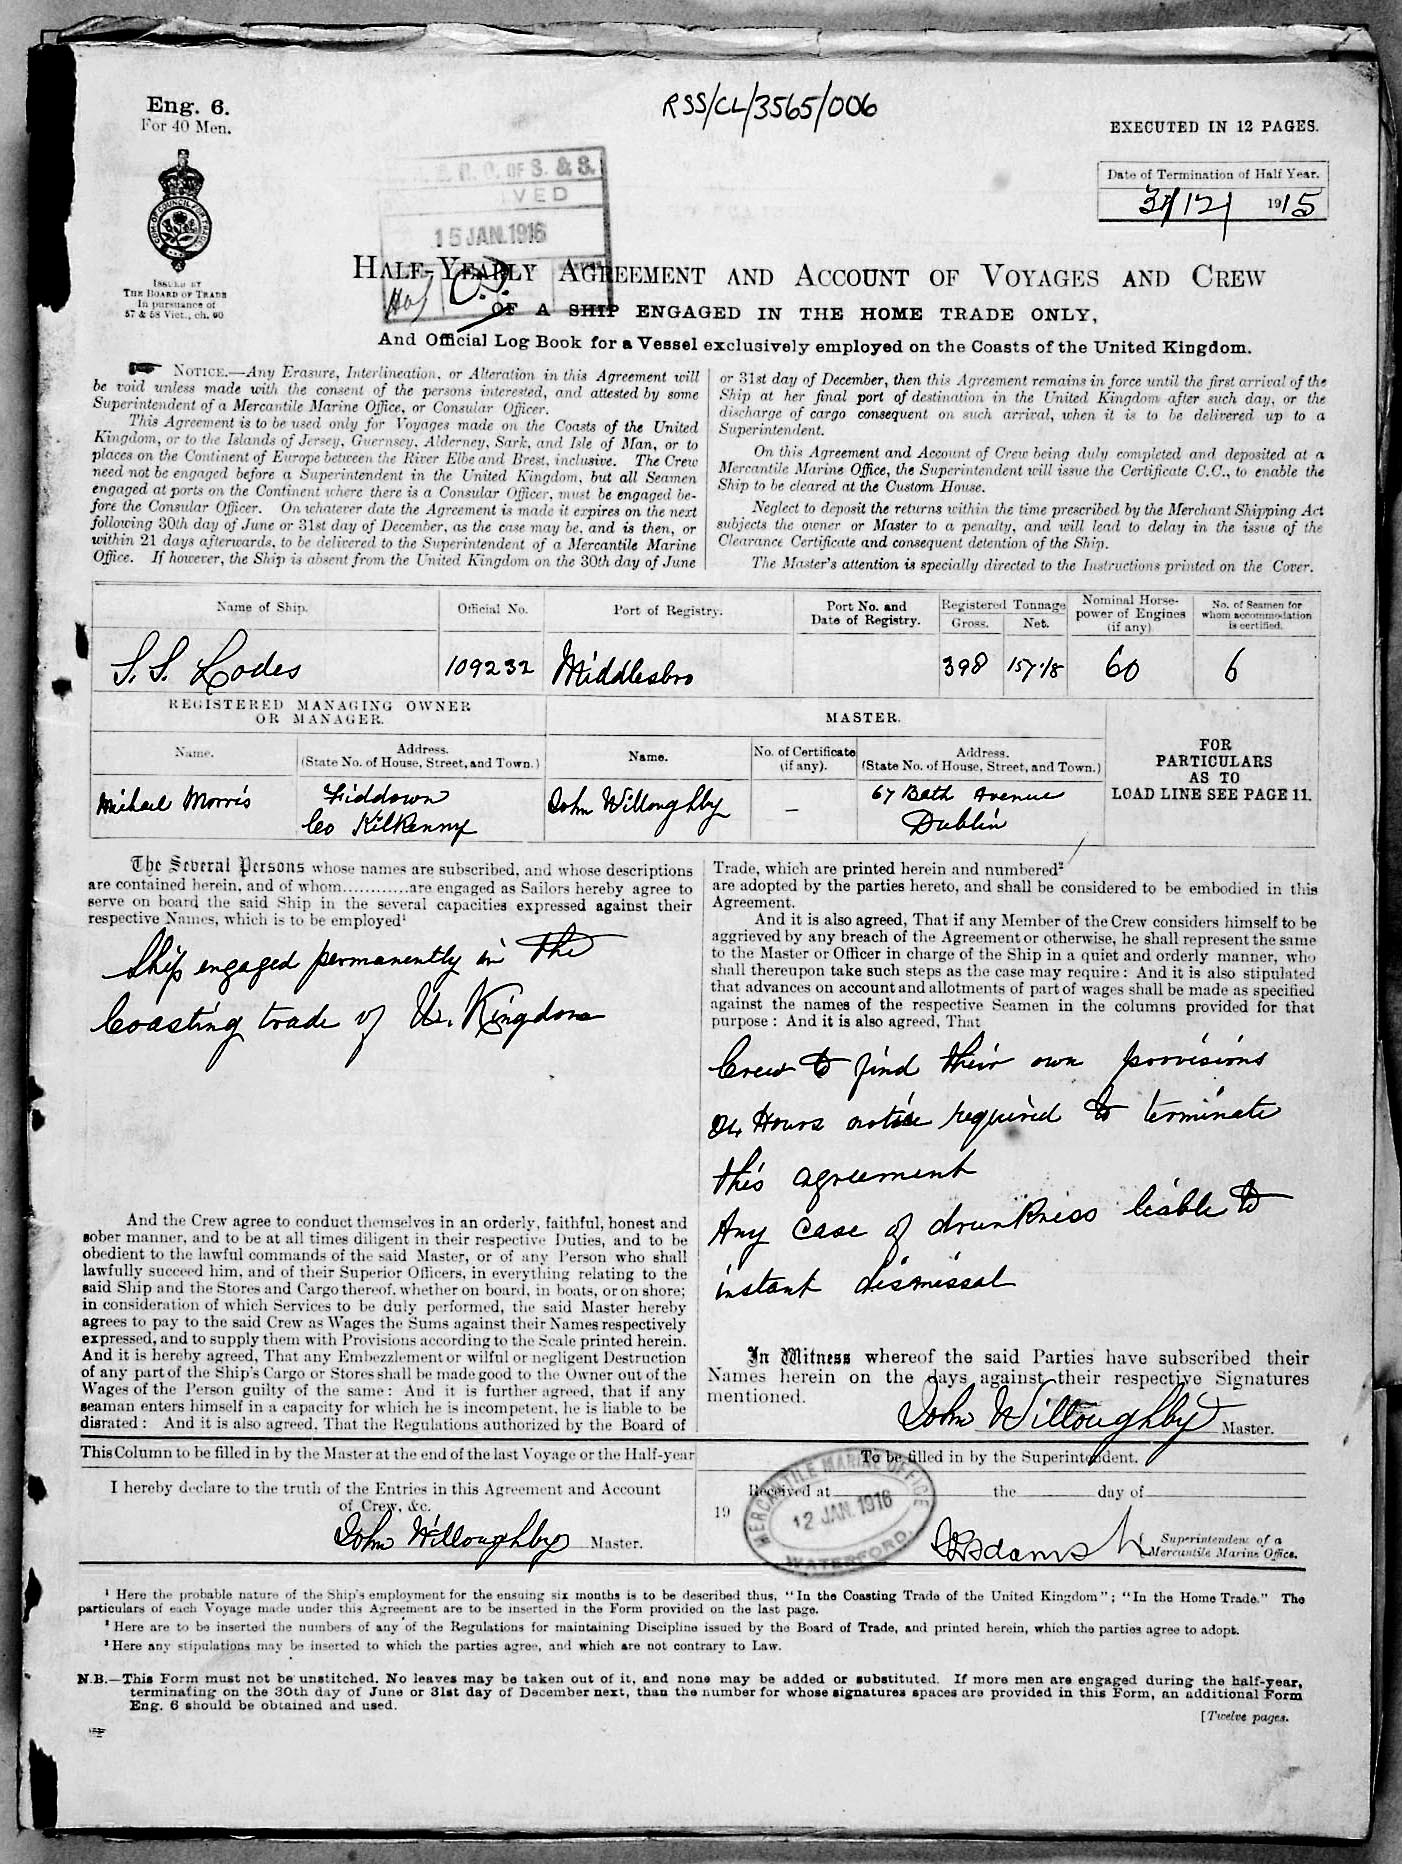 Eng. 6.
For 40 Men.
RSS/CL/3565/006
EXECUTED IN 12 PAGES.
Date of Termination of Half Year.
31/12/ 1915
R. G. OF S. & S.
IVED
15 JAN. 1916
COM: OF COUNCIL FOR TRADE
ISSUED BY
THE BOARD OF TRADE
In pursuance of
57 & 58 Vict., ch. 60
HALF-YEARLY AGREEMENT AND ACCOUNT OF VOYAGES AND CREW
OF A SHIP ENGAGED IN THE HOME TRADE ONLY,
And Official Log Book for a Vessel exclusively employed on the Coasts of the United Kingdom.
NOTICE.—Any Erasure, Interlineation, or Alteration in this Agreement will
be void unless made with the consent of the persons interested, and attested by some
Superintendent of a Mercantile Marine Office, or Consular Officer.
This Agreement is to be used only for Voyages made on the Coasts of the United
Kingdom, or to the Islands of Jersey, Guernsey, Alderney, Sark, and Isle of Man, or to
places on the Continent of Europe between the River Elbe and Brest, inclusive. The Crew
need not be engaged before a Superintendent in the United Kingdom, but all Seamen
engaged at ports on the Continent where there is a Consular Officer, must be engaged be-
fore the Consular Officer. On whatever date the Agreement is made it expires on the next
following 30th day of June or 31st day of December, as the case may be, and is then, or
within 21 days afterwards, to be delivered to the Superintendent of a Mercantile Marine
Office. If however, the Ship is absent from the United Kingdom on the 30th day of June
or 31st day of December, then this Agreement remains in force until the first arrival of the
Ship at her final port of destination in the United Kingdom after such day, or the
discharge of cargo consequent on such arrival, when it is to be delivered up to a
Superintendent.
On this Agreement and Account of Crew being duly completed and deposited at a
Mercantile Marine Office, the Superintendent will issue the Certificate C.C., to enable the
Ship to be cleared at the Custom House.
Neglect to deposit the returns within the time prescribed by the Merchant Shipping Act
subjects the owner or Master to a penalty, and will lead to delay in the issue of the
Clearance Certificate and consequent detention of the Ship.
The Master's attention is specially directed to the Instructions printed on the Cover.
Name of Ship.
Official No.
Port of Registry.
Port No. and
Date of Registry.
Registered Tonnage
Gross.
Net.
Nominal Horse-
power of Engines
(if any)
No. of Seamen for
whom accommodation
is certified.
S. S. Rodes
109232
Middlesbro
398
157.18
60
6
REGISTERED MANAGING OWNER
OR MANAGER.
MASTER.
Name.
Address.
(State No. of House, Street, and Town.)
Name.
No. of Certificate
(if any).
Address.
(State No. of House, Street, and Town.)
FOR
PARTICULARS
AS TO
LOAD LINE SEE PAGE 11.
Michael Morris
Fiddown
Co Kilkenny
John Willoughby
—
67 Bath Avenue
Dublin
The Several Persons whose names are subscribed, and whose descriptions
are contained herein, and of whom............are engaged as Sailors hereby agree to
serve on board the said Ship in the several capacities expressed against their
respective Names, which is to be employed¹
Ship engaged permanently in the
Coasting trade of U. Kingdom
And the Crew agree to conduct themselves in an orderly, faithful, honest and
sober manner, and to be at all times diligent in their respective Duties, and to be
obedient to the lawful commands of the said Master, or of any Person who shall
lawfully succeed him, and of their Superior Officers, in everything relating to the
said Ship and the Stores and Cargo thereof, whether on board, in boats, or on shore;
in consideration of which Services to be duly performed, the said Master hereby
agrees to pay to the said Crew as Wages the Sums against their Names respectively
expressed, and to supply them with Provisions according to the Scale printed herein.
And it is hereby agreed, That any Embezzlement or wilful or negligent Destruction
of any part of the Ship's Cargo or Stores shall be made good to the Owner out of the
Wages of the Person guilty of the same: And it is further agreed, that if any
seaman enters himself in a capacity for which he is incompetent, he is liable to be
disrated: And it is also agreed, That the Regulations authorized by the Board of
Trade, which are printed herein and numbered²
are adopted by the parties hereto, and shall be considered to be embodied in this
Agreement.
And it is also agreed, That if any Member of the Crew considers himself to be
aggrieved by any breach of the Agreement or otherwise, he shall represent the same
to the Master or Officer in charge of the Ship in a quiet and orderly manner, who
shall thereupon take such steps as the case may require: And it is also stipulated
that advances on account and allotments of part of wages shall be made as specified
against the names of the respective Seamen in the columns provided for that
purpose: And it is also agreed, That
Crew to find their own provisions
24 Hours notice required to terminate
this agreement
Any case of drunkness liable to
instant dismissal
In Witness whereof the said Parties have subscribed their
Names herein on the days against their respective Signatures
mentioned.
John Willoughby Master.
This Column to be filled in by the Master at the end of the last Voyage or the Half-year
I hereby declare to the truth of the Entries in this Agreement and Account
of Crew, &c.
John Willoughby Master.
To be filled in by the Superintendent.
Received at the day of
19
MERCANTILE MARINE OFFICE
12 JAN. 1916
WATERFORD.
Adams
Superintendent of a
Mercantile Marine Office.
¹ Here the probable nature of the Ship's employment for the ensuing six months is to be described thus, "In the Coasting Trade of the United Kingdom"; "In the Home Trade." The
particulars of each Voyage made under this Agreement are to be inserted in the Form provided on the last page.
² Here are to be inserted the numbers of any of the Regulations for maintaining Discipline issued by the Board of Trade, and printed herein, which the parties agree to adopt.
³ Here any stipulations may be inserted to which the parties agree, and which are not contrary to Law.
N.B.—This Form must not be unstitched. No leaves may be taken out of it, and none may be added or substituted. If more men are engaged during the half-year,
terminating on the 30th day of June or 31st day of December next, than the number for whose signatures spaces are provided in this Form, an additional Form
Eng. 6 should be obtained and used.
[Twelve pages.